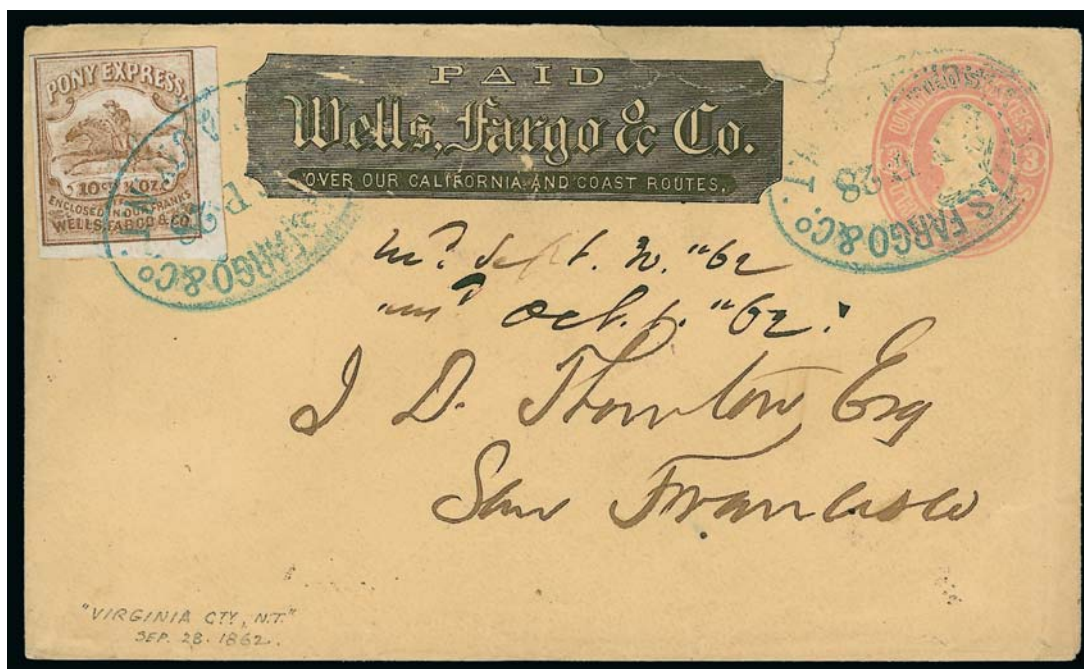 PONY EXPRESS.
10 cts ½ OZ.
ENCLOSED IN OUR FRANKS
WELLS, FARGO & CO.
PAID
Wells, Fargo & Co.
OVER OUR CALIFORNIA AND COAST ROUTES.
FARGO & Co.
S FARGO & Co.
28
UNITED STATES
3
Oct. 1. "62.
J D. Thornton Esq
San Francisco
"VIRGINIA CTY, N.T."
SEP. 28. 1862.